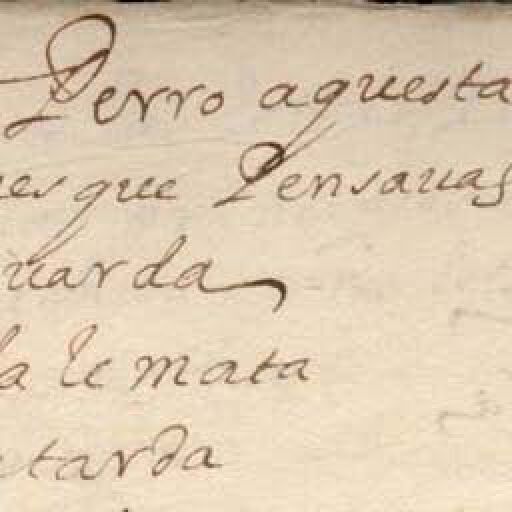 Perro aquesta
es que Pensauas
uarda
la le mata
tarda